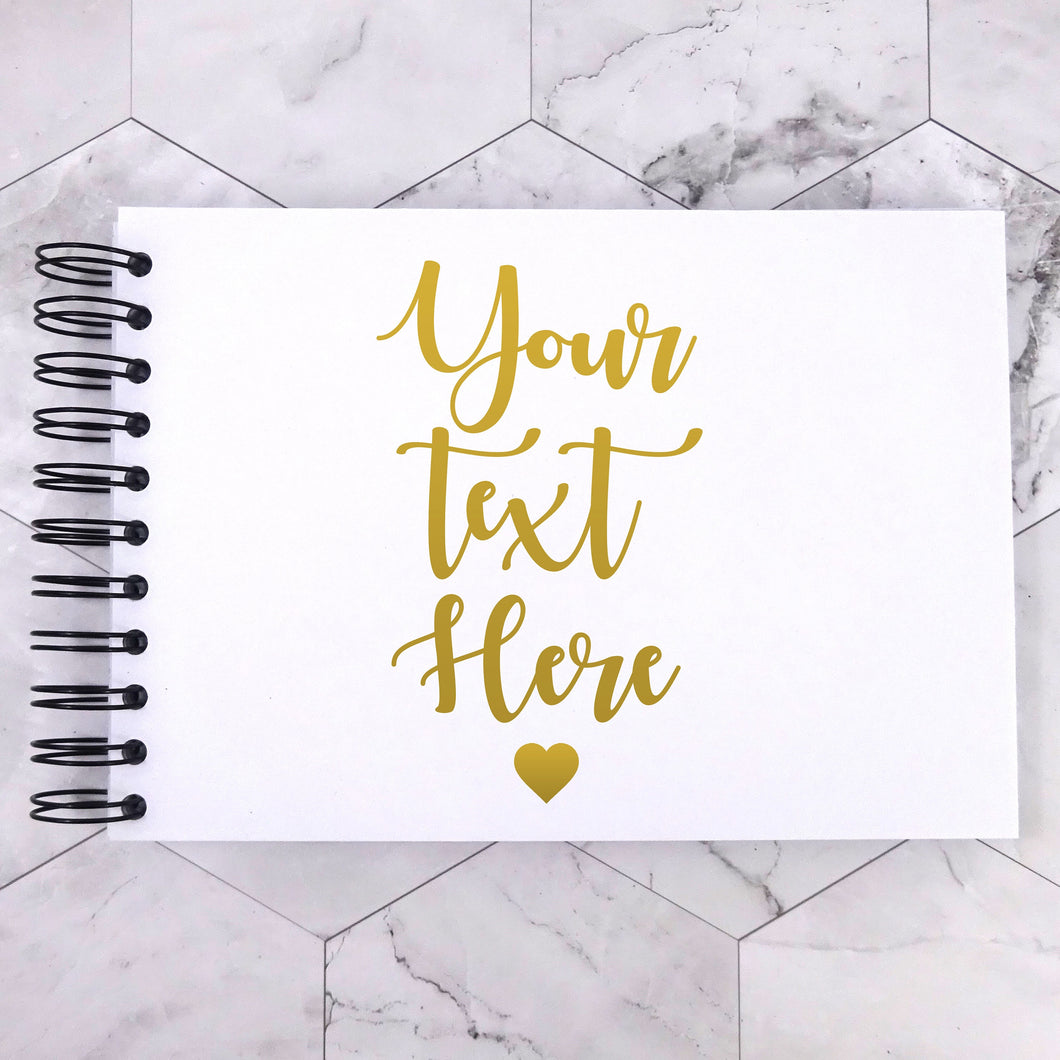 Your
text
Here